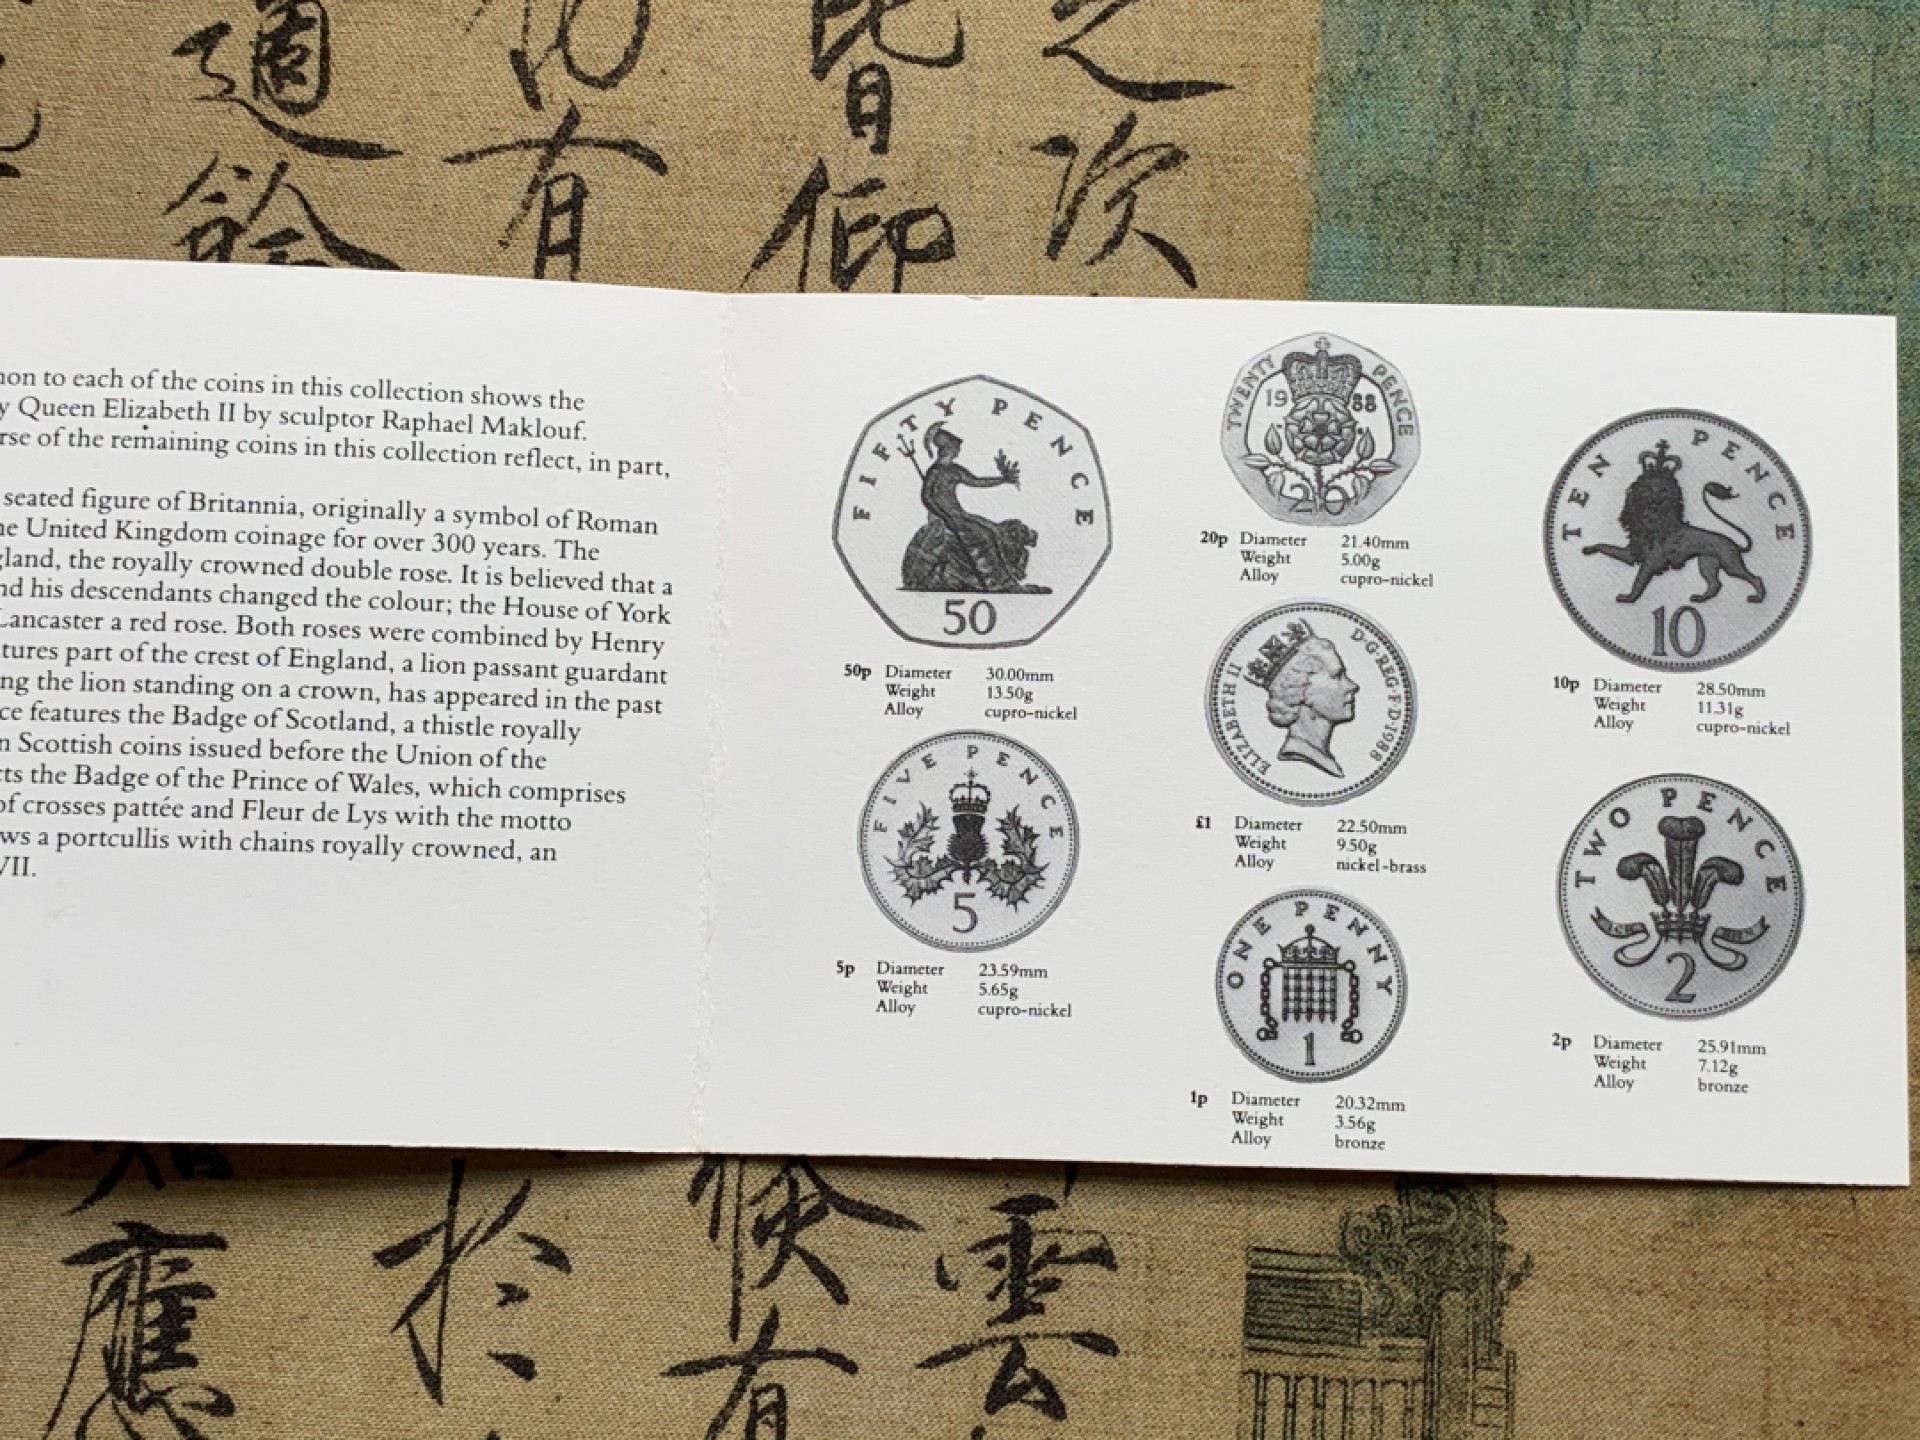 to each of the coins in this collection shows the
Queen Elizabeth II by sculptor Raphael Maklouf.
of the remaining coins in this collection reflect, in part,
seated figure of Britannia, originally a symbol of Roman
United Kingdom coinage for over 300 years. The
the royally crowned double rose. It is believed that a
his descendants changed the colour; the House of York
Lancaster a red rose. Both roses were combined by Henry
part of the crest of England, a lion passant guardant
the lion standing on a crown, has appeared in the past
features the Badge of Scotland, a thistle royally
Scottish coins issued before the Union of the
the Badge of the Prince of Wales, which comprises
of crosses pattée and Fleur de Lys with the motto
a portcullis with chains royally crowned, an
VII.
FIFTY PENCE
50
50p Diameter 30.00mm
Weight 13.50g
Alloy cupro-nickel
FIVE PENCE
5
5p Diameter 23.59mm
Weight 5.65g
Alloy cupro-nickel
TWENTY PENCE
1988
20
20p Diameter 21.40mm
Weight 5.00g
Alloy cupro-nickel
ELIZABETH II D·G·REG·F·D·1988
£1 Diameter 22.50mm
Weight 9.50g
Alloy nickel-brass
ONE PENNY
1
1p Diameter 20.32mm
Weight 3.56g
Alloy bronze
TEN PENCE
10
10p Diameter 28.50mm
Weight 11.31g
Alloy cupro-nickel
TWO PENCE
2
2p Diameter 25.91mm
Weight 7.12g
Alloy bronze
之次
皆仰
有
適餘
雲
有
於
應